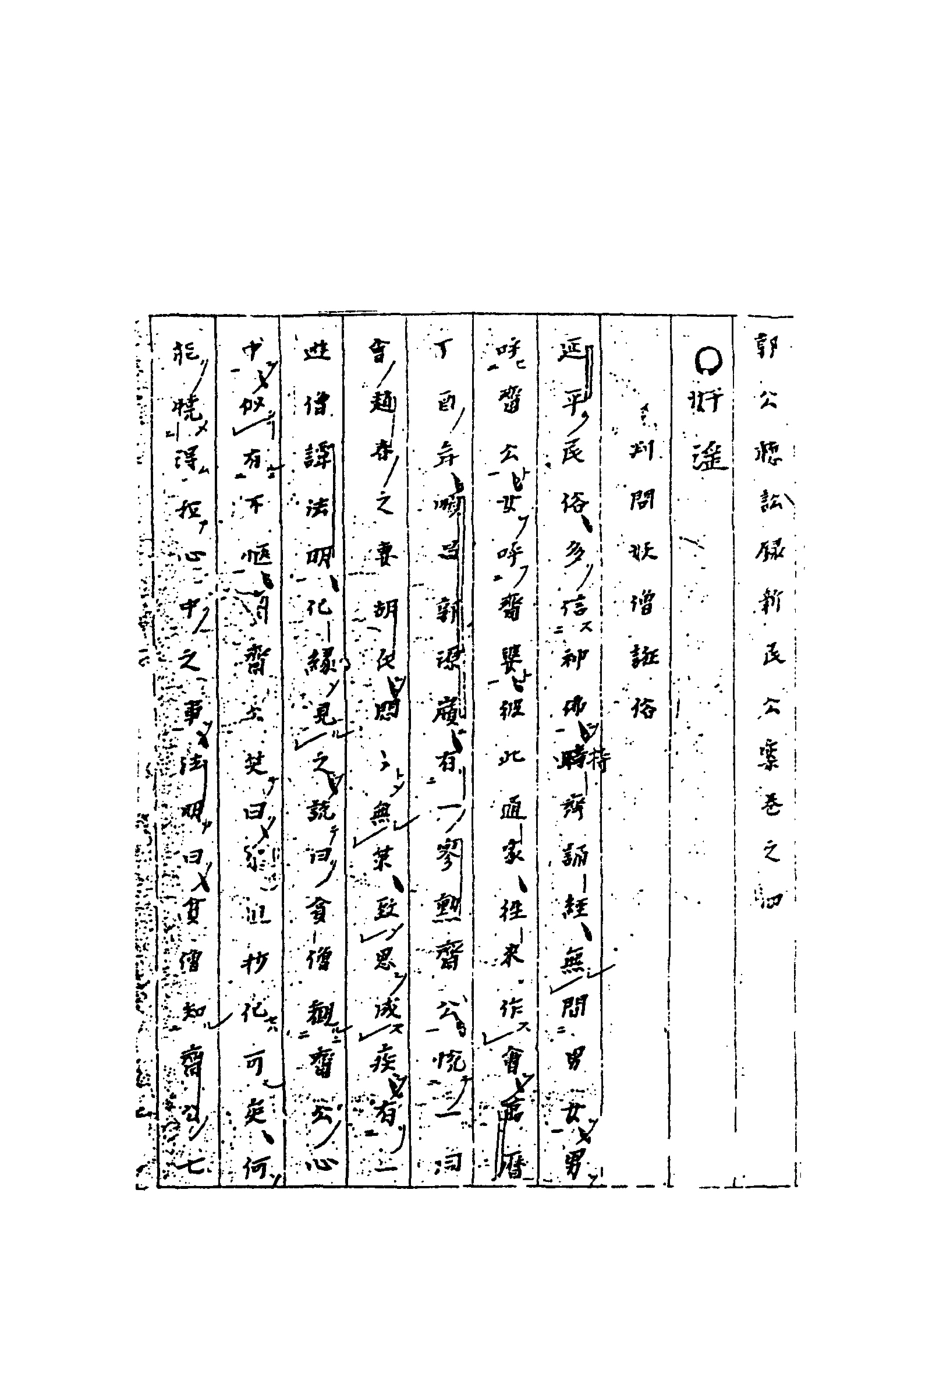 郭公聽訟録新民公案卷之四
奸淫
判問妖僧誑俗
延平民俗多信神佛時齊誦經無問男女男
呼齋公女呼齋婆彼此通家往來作會萬曆
丁酉年順昌郭源廣有一廖勲齋公慌一同
會趙泰之妻胡氏悶々無策致思成疾有一
遊僧譚法明化緣見之説曰貧僧觀齋公心
中似有不愜齋公笑曰抄化可矣何
能曉得我心中之事法明曰貧僧知齋公七